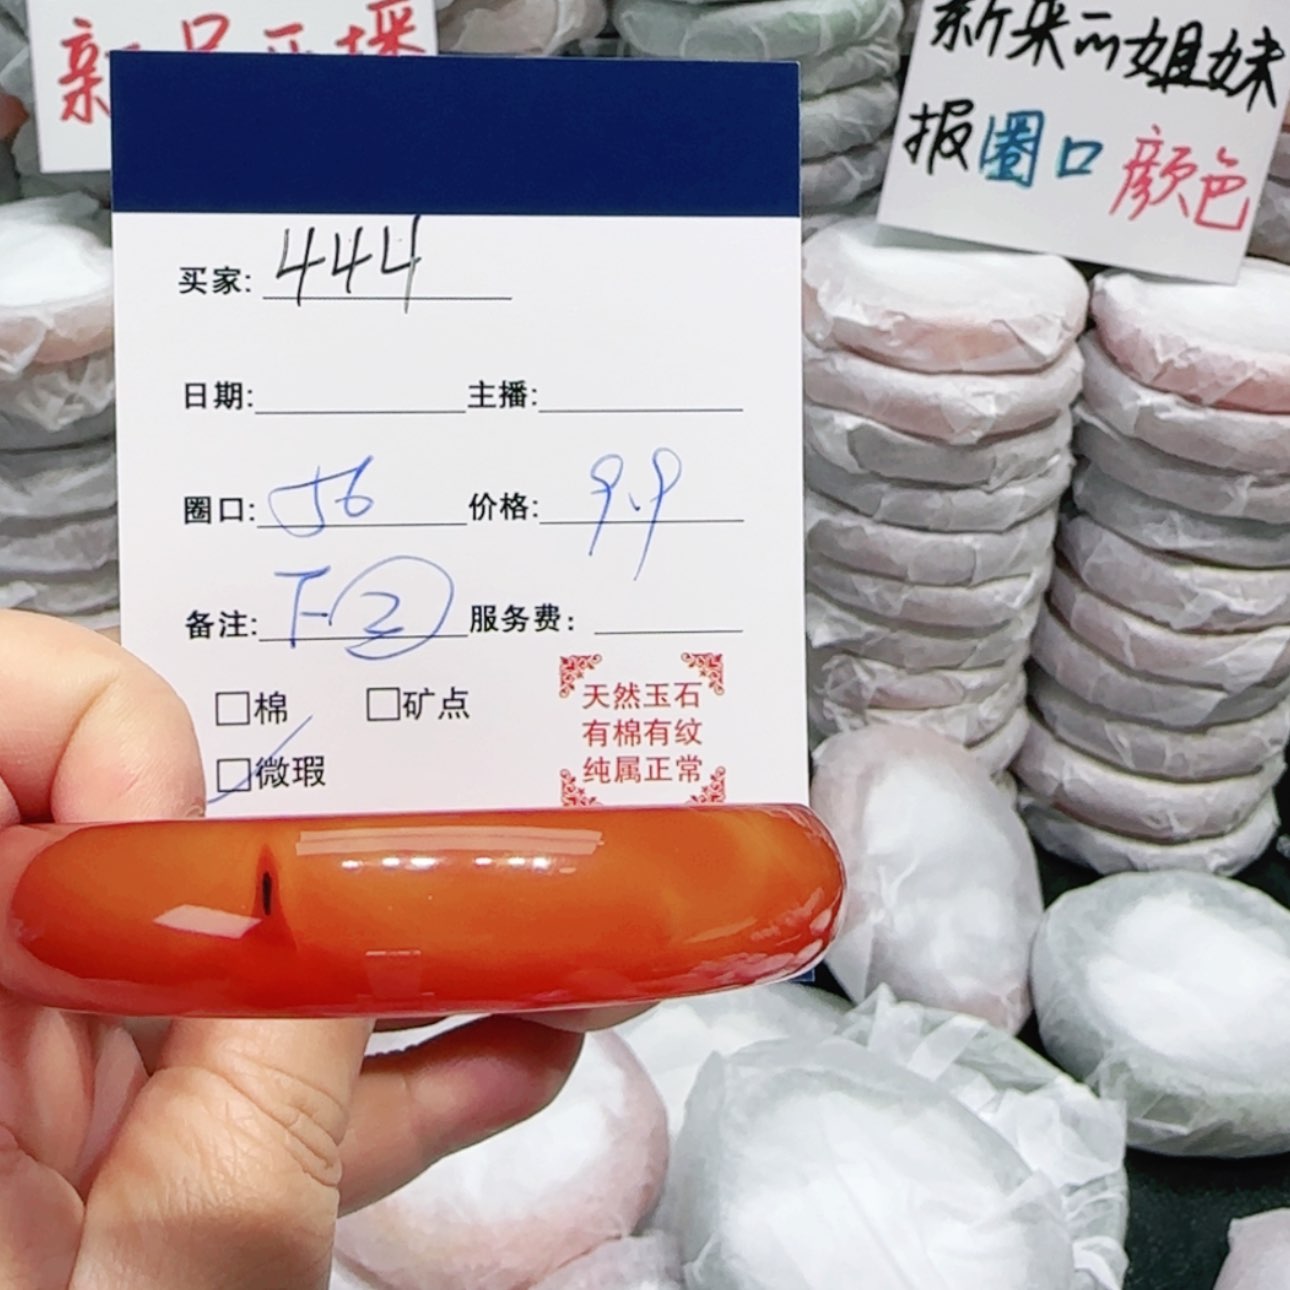 新来的姐妹
报圈口 颜色
买家: 444
日期: 主播:
圈口: 56 价格: 9.9
备注: F-② 服务费:
□棉 □矿点
□微瑕
天然玉石
有棉有纹
纯属正常